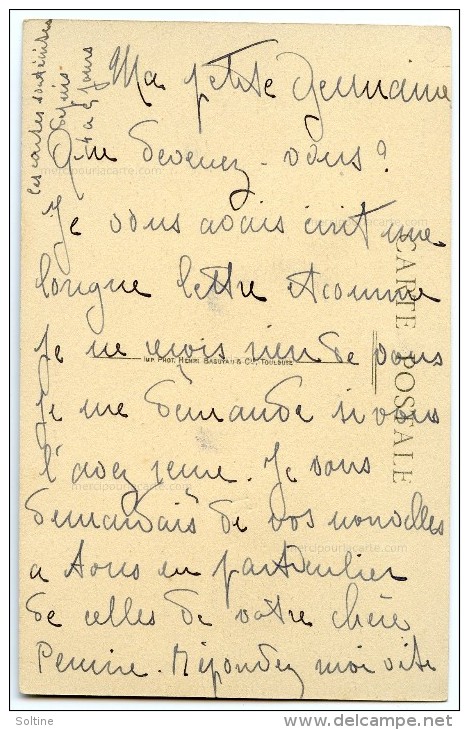 Ma petite Germaine
Que devenez-vous?
Je vous avais écrit une
longue lettre et comme
Je ne reçois rien de vous
Je me demande si vous
l'avez reçue. Je vous
demandais de vos nouvelles
a tous en particulier
de celles de votre chère
Répondez moi vite
Ces cartes sont écrites
depuis
4 a 5 jours
CARTE POSTALE
IMP. PHOT. HENRI BASUYAU & Cie, TOULOUSE
mercipourlacarte.com
mercipourlacarte.com
mercipourlacarte.com
mercipourlacarte.com
Soltine
delcampe.net